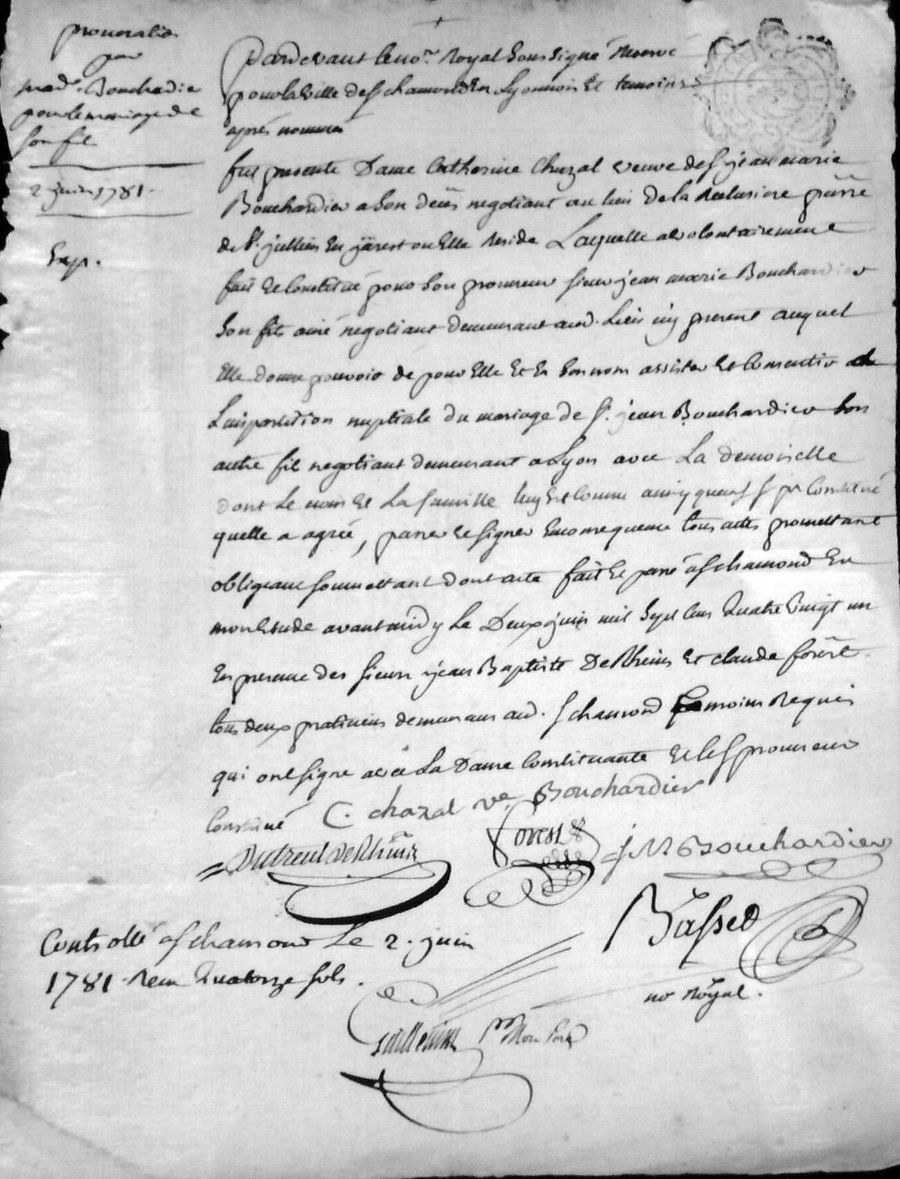 procuration
par
mad. Bouchardier
pour le mariage de
son fils
2 juin 1781.
Exp.
Pardevant le nore. Royal soussigné reservé
pour la ville de St chamond en Lyonnois et temoins
après nommés
fut presente Dame Catherine Chazal veuve de Sr jean marie
Bouchardier a son deces negotiant au lieu de la
de St. jullien en jarest ou elle reside Laquelle a volontairement
fait et constitué pour son procureur sieur jean marie Bouchardier
son fils ainé negotiant demeurant aud. Lieu icy present auquel
elle donne pouvoir de pour elle et en son nom assister et consentir a la
nuptiale du mariage de Sr. jean Bouchardier son
autre fils negotiant demeurant a Lyon avec La demoiselle
dont le nom et La famille luy est connu ainsy queud. Sr pr constitué
quelle a agréé, passer et signer en consequence tous actes promettant
obligeant soumettant dont acte fait et passé a St chamond en
mon etude avant midy le Deux juin mil sept cens quatre vingt un
En presence des sieurs jean Baptiste De Rhins et claude forest
tous deux praticiens demeurans aud. St chamond temoins requis
qui ont signé avec La Dame constituante et led. Sr procureur
constitué C. chazal ve Bouchardier
Dutreul De Rhins forest J M Bouchardier
Controllé a St chamond Le 2. juin
1781. Reçu quatorze sols.
Basset
no Royal.
Guillemin